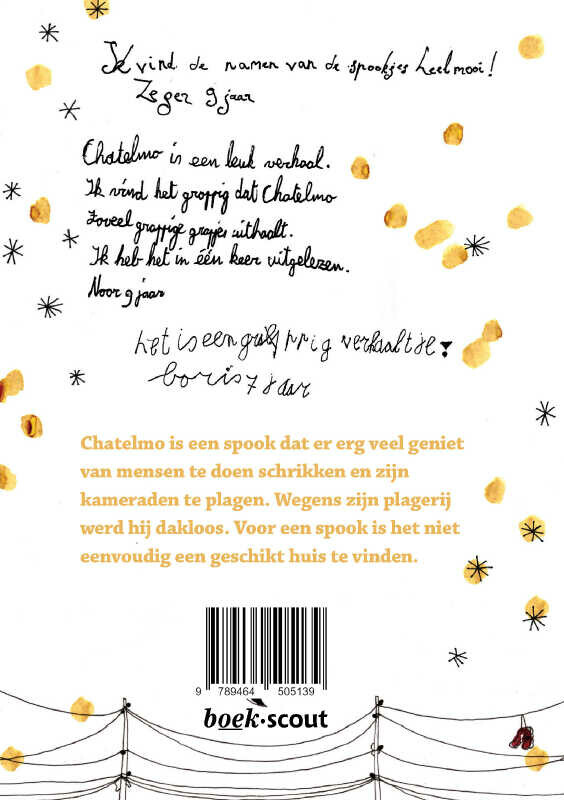 Ik vind de namen van de spookjes heel mooi!
Zeger 9 jaar
Chatelmo is een leuk verhaal.
Ik vind het grappig dat Chatelmo
zoveel grappige grapjes uithaalt.
Ik heb het in één keer uitgelezen.
Noor 9 jaar
het is een grappig verhaaltje!
boris 7 jaar
Chatelmo is een spook dat er erg veel geniet
van mensen te doen schrikken en zijn
kameraden te plagen. Wegens zijn plagerij
werd hij dakloos. Voor een spook is het niet
eenvoudig een geschikt huis te vinden.
9 789464 505139
boek·scout